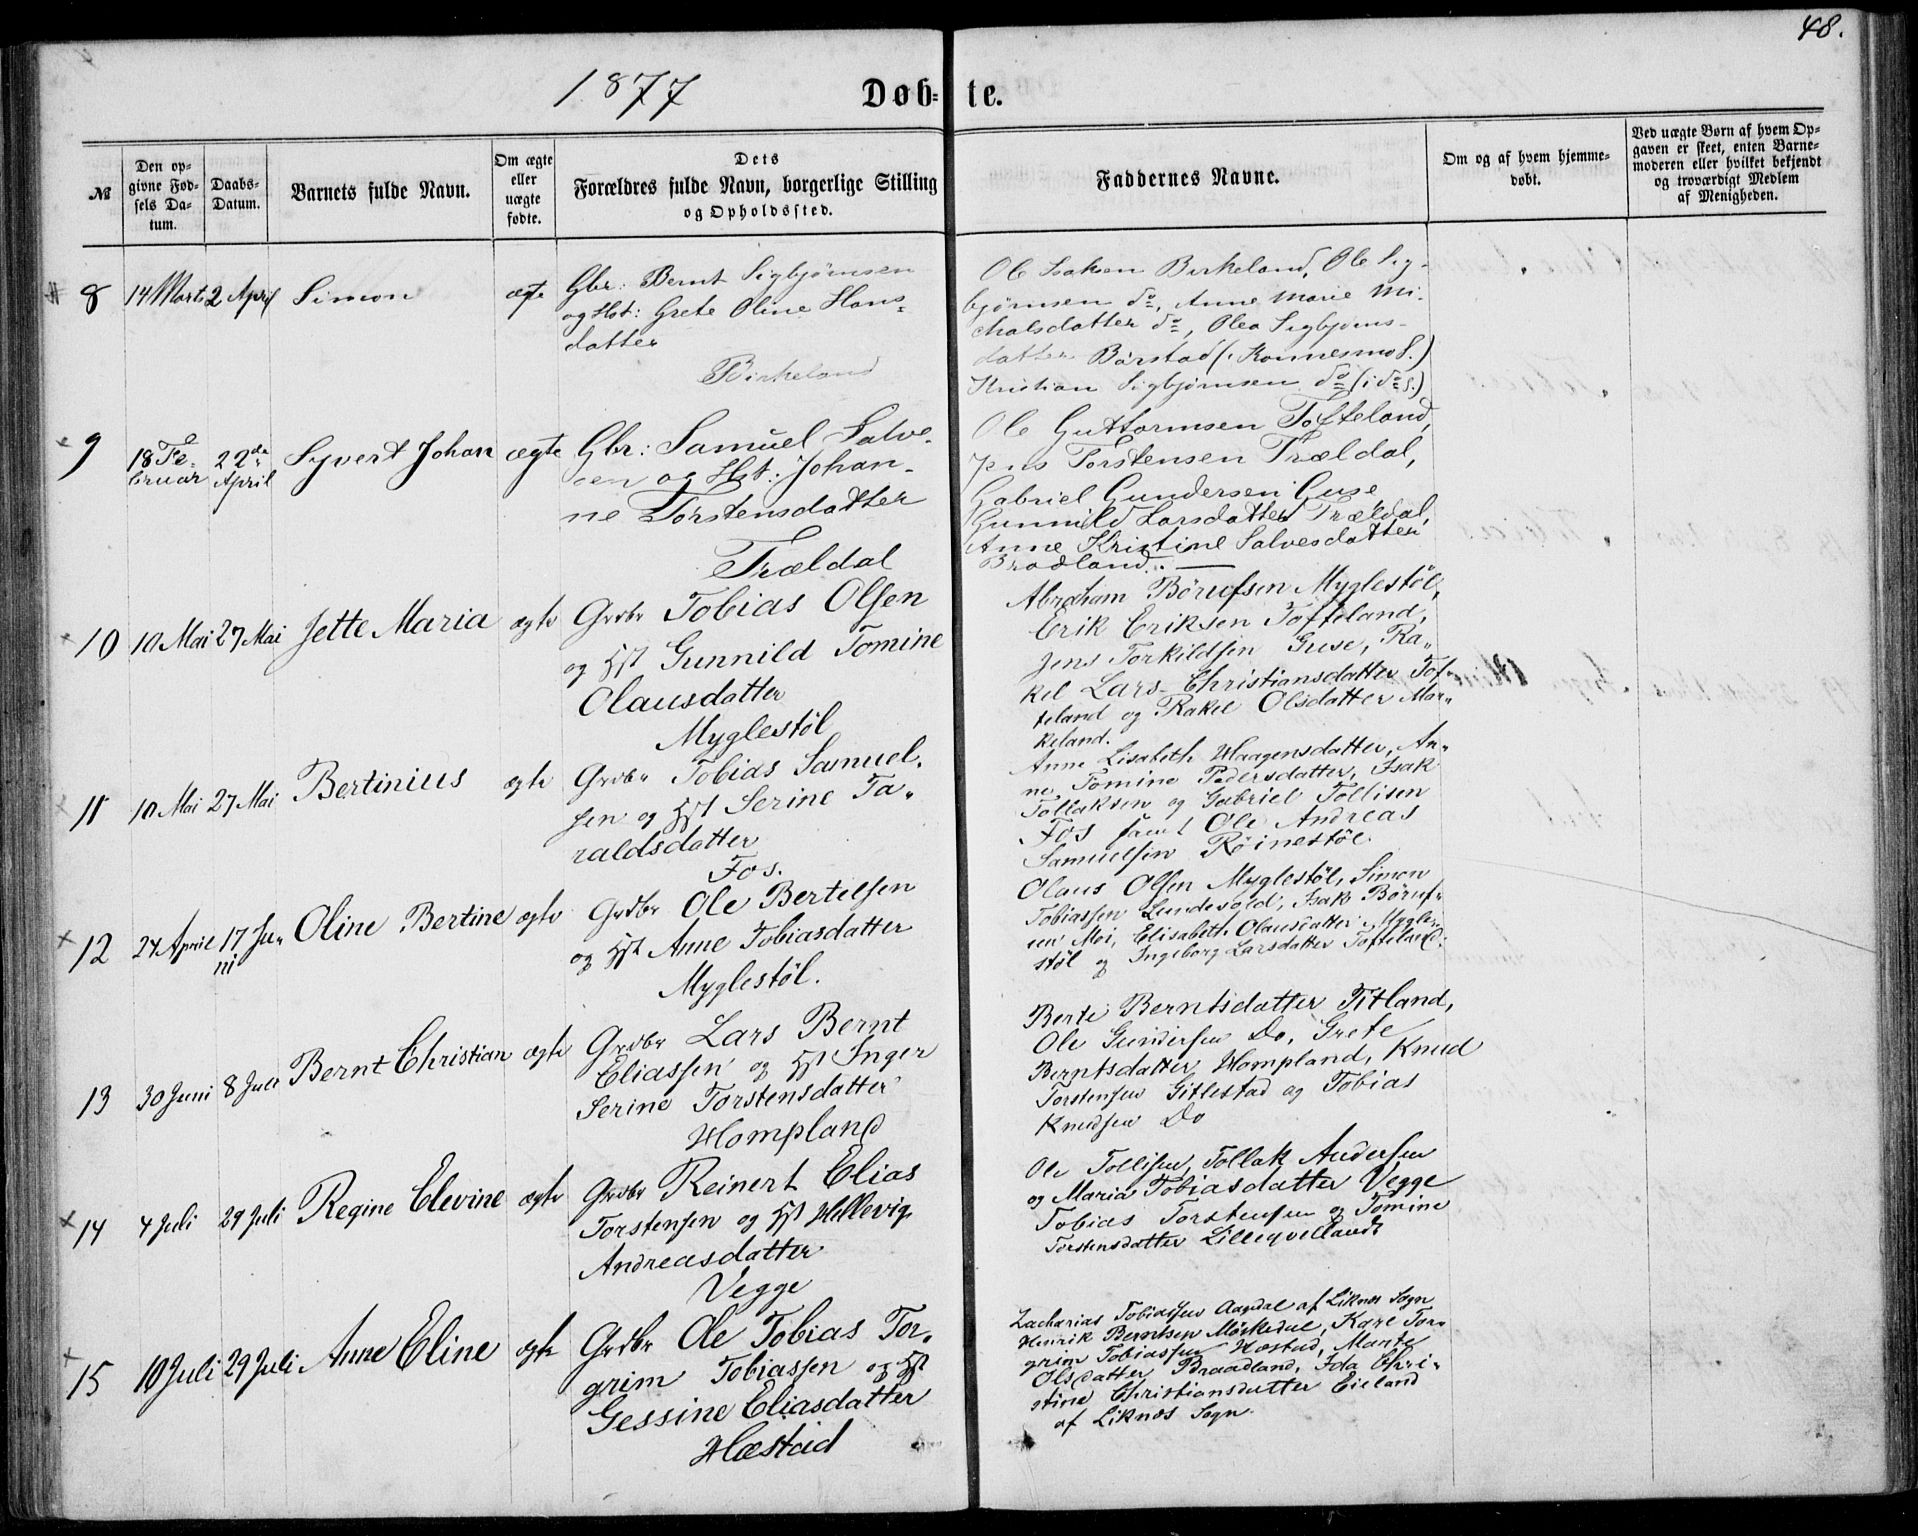 48.
1877
Døb= te.
№
Den op=
givne Fød=
sels Da=
tum.
Daabs=
Datum.
Barnets fulde Navn.
Om ægte
eller
uægte
fødte.
Dets
Forældres fulde Navn, borgerlige Stilling
og Opholdssted.
Faddernes Navne.
Om og af hvem hjemme=
døbt.
Ved uægte Børn af hvem Op=
gaven er skeet, enten Barne=
moderen eller hvilket bekjendt
og troværdigt Medlem
af Menigheden.
8
14 Marts
2 April
Simon
ægte
Gbr: Bernt Sigbjørnsen
og Hst: Grete Oline Hans=
datter
Birkeland
Ole Isaksen Birkeland, Ole Sig-
bjørnsen do, Anne Marie Mi-
chalsdatter do, Olea Sigbjørns-
datter Bårstad (i Konnesmo S.)
Kristian Sigbjørnsen do (i do S.)
9
18 Fe-
bruar
22de
April
Syvert Johan
ægte
Gbr: Samuel Salve-
sen og Hst: Johan-
ne Torstensdatter
Trældal
Ole Guttormsen Tofteland,
Jens Torstensen Trældal,
Gabriel Gundersen Guse
Gunnild Larsdatter Trældal,
Anne Kristine Salvesdatter
Bradland.
10
10 Mai
27 Mai
Jette Maria
ægte
Grdbr Tobias Olsen
og Hst Gunnild Tomine
Olausdatter
Myglestöl
Abraham Börufsen Myglestöl,
Erik Eriksen Tofteland,
Jens Torkildsen Guse, Ra-
kel Lars Christiansdatter Tof-
teland og Rakel Olsdatter Mar-
keland.
11
10 Mai
27 Mai
Bertinius
ægte
Grdbr Tobias Samuel-
sen og Hst Serine Ta-
raldsdatter
Fos.
Anne Lisabeth Haagensdatter, An-
ne Tomine Pedersdatter, Isak
Tollaksen og Gabriel Tollisen
Fos samt Ole Andreas
Samuelsen Röinestöl.
12
24 April
17 Ju-
ni
Oline Bertine
ægte
Grdbr Ole Bertelsen
og Hst Anne Tobiasdatter
Myglestöl.
Olaus Olsen Myglestöl, Simon
Tobiassen Lundevold, Isak Böruf-
sen Moi, Elisabeth Olausdatter Mygle-
stöl og Ingeborg Larsdatter Tofteland.
13
30 Juni
8 Juli
Bernt Christian
ægte
Grdbr Lars Bernt
Eliassen og Hst Inger
Serine Torstensdatter
Hompland
Berte Berntsdatter Titland,
Ole Gundersen Do, Grete
Berntsdatter Hompland, Knud
Torstensen Gitlestad og Tobias
Knudsen Do
14
4 Juli
29 Juli
Regine Elevine
ægte
Grdbr Reinert Elias
Torstensen og Hst Hellevig
Andreasdatter
Vegge
Ole Tollisen, Tollak Andersen
og Maria Tobiasdatter Vegge
Tobias Torstensen og Tomine
Torstensdatter Lilleqvelland
15
10 Juli
29 Juli
Anne Eline
ægte
Grdbr Ole Tobias Tor-
grim Tobiassen og Hst
Gessine Eliasdatter
Hæstad
Zacharias Tobiassen Aagdal af Liknæs Sogn
Henrik Berntsen Möskedal, Karl Tor-
grim Tobiassen Hæstad, Marte
Olsdatter Braadland, Ida Chri-
stine Christiansdatter Eieland
af Liknæs Sogn.